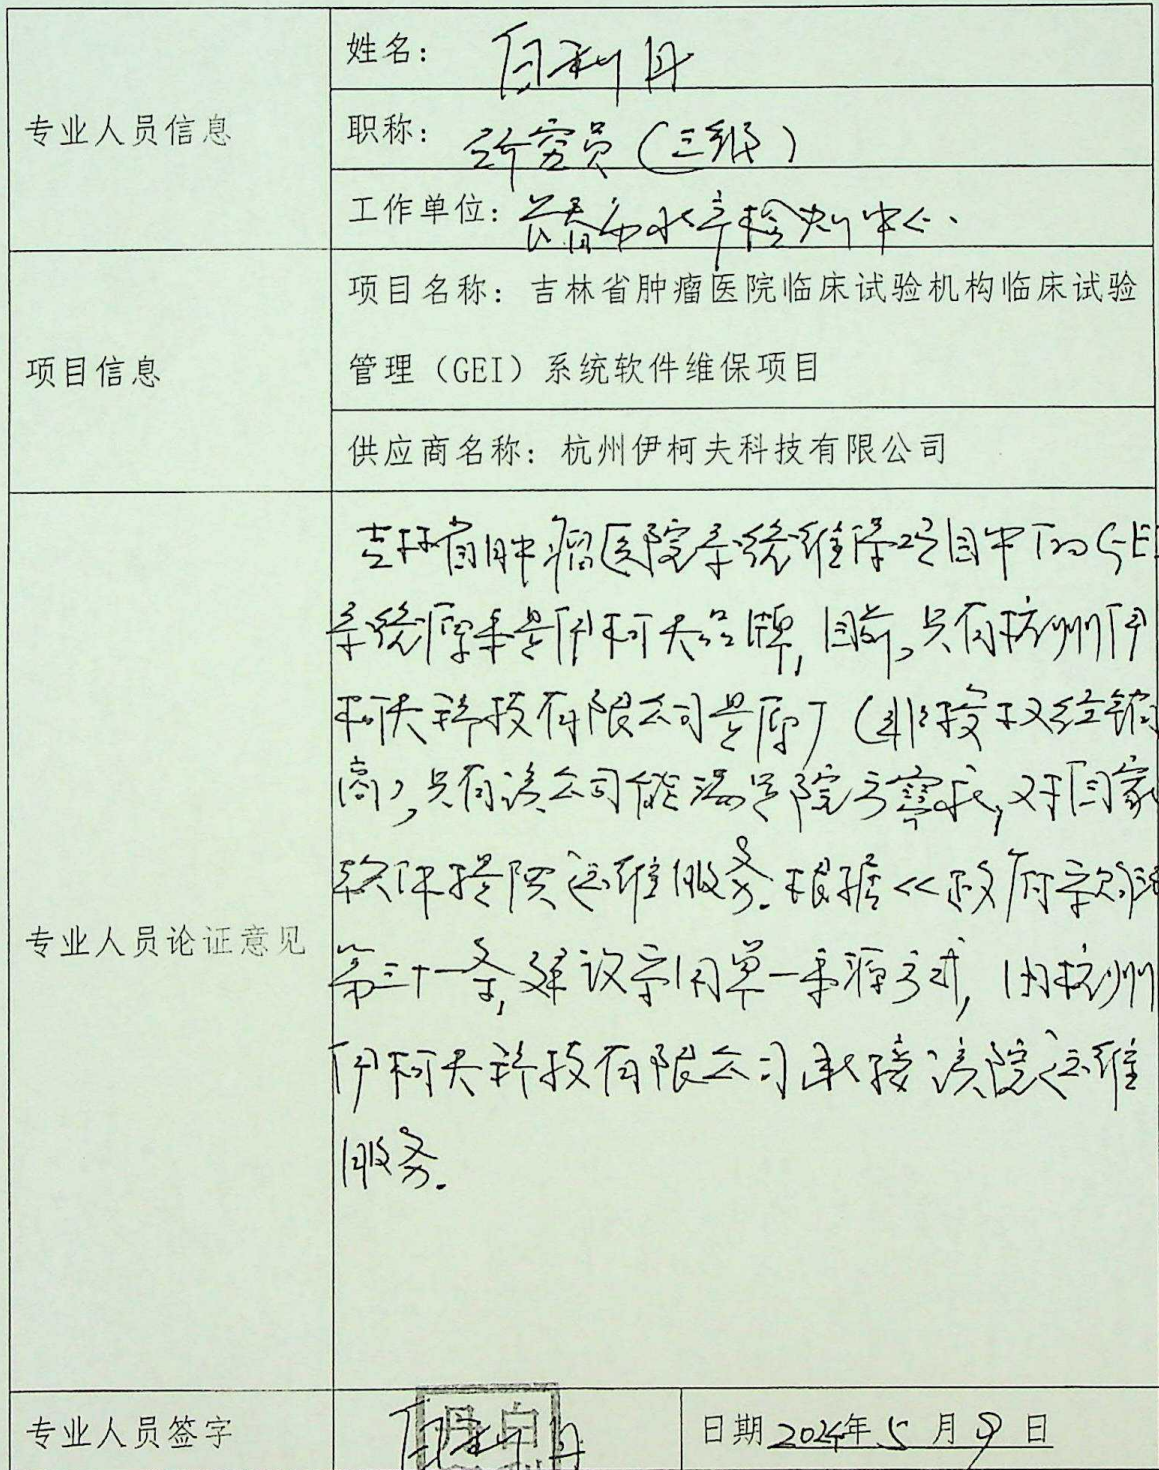 专业人员信息
姓名: 白利丹
职称: 研究员(三级)
工作单位: 长春市水平检测中心
项目信息
项目名称: 吉林省肿瘤医院临床试验机构临床试验
管理(GEI)系统软件维保项目
供应商名称: 杭州伊柯夫科技有限公司
专业人员论证意见
吉林省肿瘤医院系统维保项目中的GEI
系统原来是伊柯夫品牌,目前,只有杭州伊
柯夫科技有限公司是原厂(非授权经销
商),只有该公司能满足院方需求,对
软件提供运维服务.根据《政府采购法
第三十一条,建议采用单一来源方式,由杭州
伊柯夫科技有限公司承接该院运维
服务.
专业人员签字
白利丹
日期 2024年5月9日